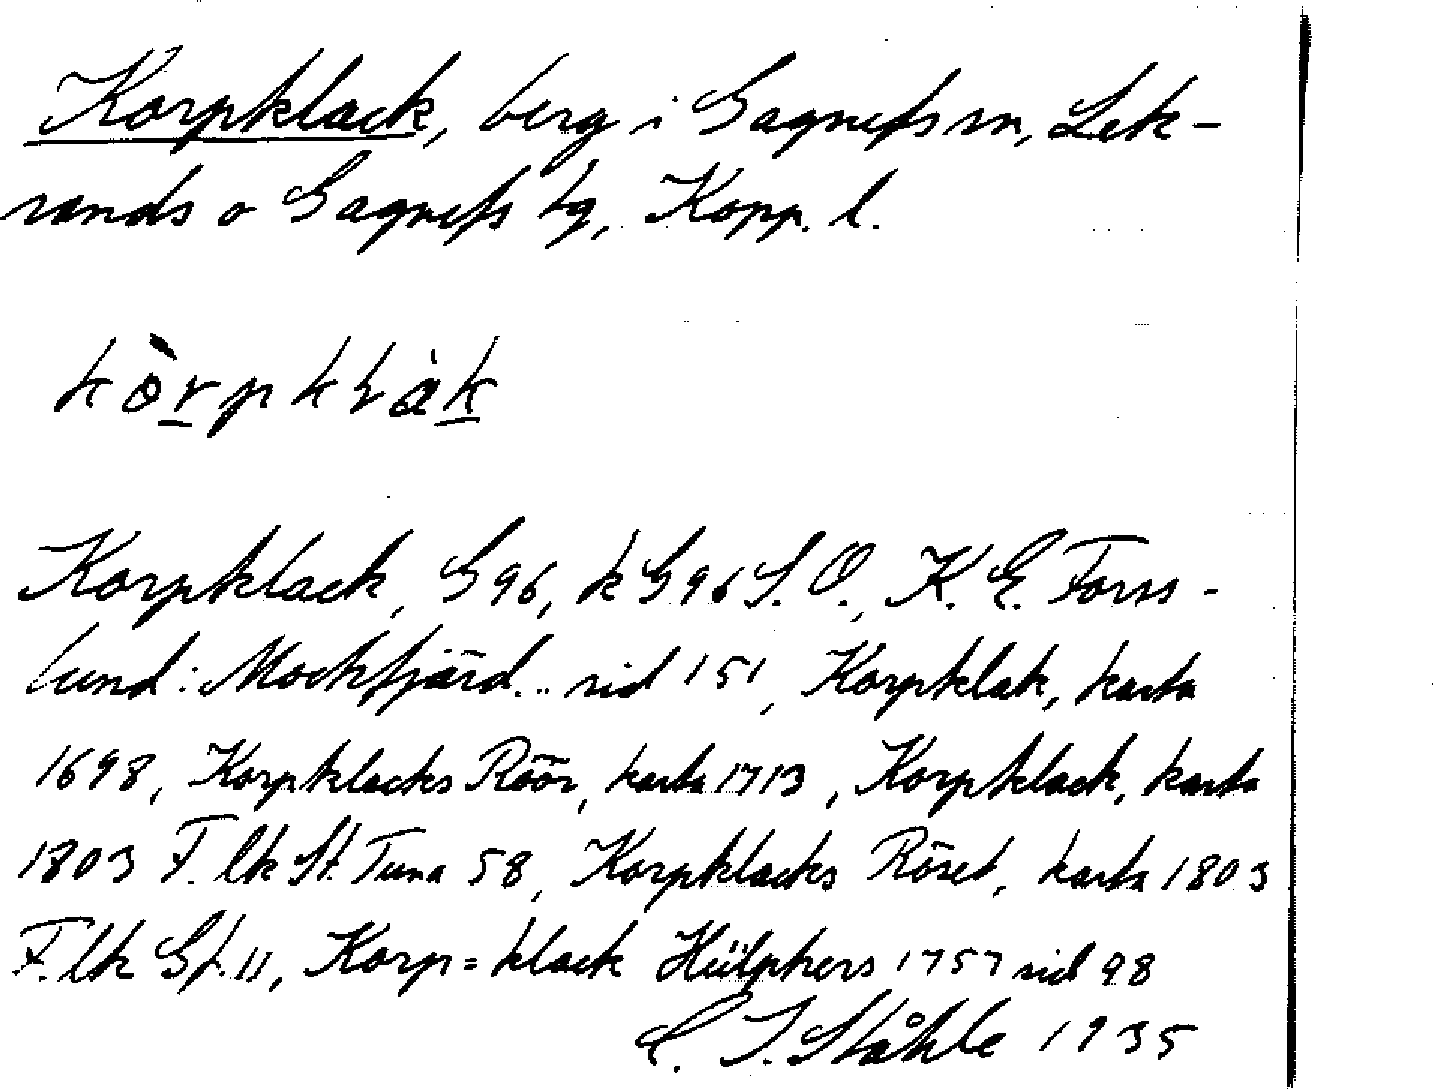 Korpklack, berg i Gagnefs sn, Lek-
sands o Gagnefs tg, Kopp. l.
kò̀rpkḷàk
Korpklack, G 96, k G 96 S.O., K. E. Forss-
lund: Mockfjärd... sid 151, Korpklak, karta
1698, Korpklacks Röör, karta 1713, Korpklack, karta
1803 F. lk St. Tuna 58, Korpklacks Röset, karta 1803
F. lk Gf. 11, Korp=klack Hülphers 1757 sid 98
C. I. Ståhle 1935